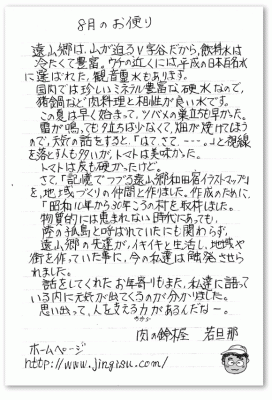 8月のお便り
遠山郷は、山が迫るV字谷だから、飲料水は
冷たくて豊富。ウチの近くには、平成の日本百名水
に選ばれた、観音霊水もあります。
国内では珍しいミネラル豊富な硬水なので、
猪鍋など肉料理と相性が良い水です。
この夏は早く始まって、ツバメの巣立ちも早かった。
雷が鳴っても夕立ちは少なくて、畑が焼けてほう
ので、天気の話をすると「はて、さて、---。」と視線
を落とす人も多いが、トマトは美味かった。
トマトは皮も硬かったけど。
さて、「記憶でつづる遠山郷和田宿イラストマップ」
を、地域づくりの仲間と作りました。作成のために、
「昭和10年から30年ころの村を取材しました。
物質的には恵まれない時代にあっても、
陸の孤島と呼ばれていたにも関わらず、
遠山郷の先達が、イキイキと生活し、地域や
街を作っていた事に、今の私達は触発させら
れました。
話をしてくれたお年寄りもまた、私達に語って
いる内に元気が出てくるのが分かりました。
思い出って、人を支える力があるんだなー。
肉の鈴木屋 若旦那
ホームページ
http://www.jingisu.com/